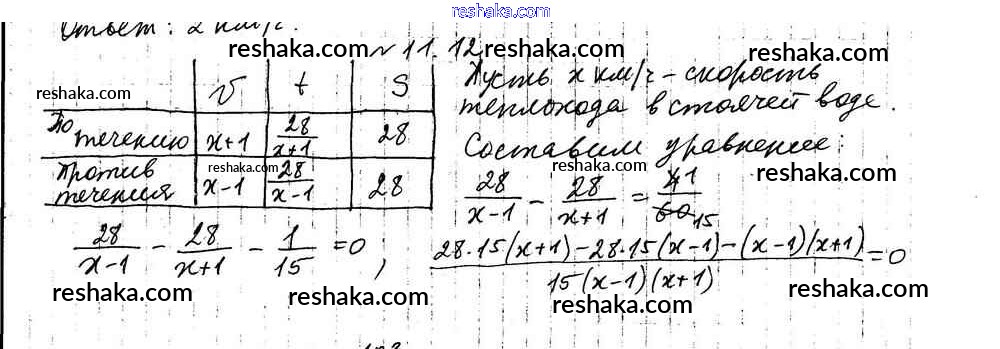 reshaka.com
Ответ: 2 км/ч.
reshaka.com
№ 11.12
reshaka.com
v t S
По течению x+1 28/(x+1) 28
Против течения x-1 28/(x-1) 28
reshaka.com
reshaka.com
reshaka.com
Пусть x км/ч - скорость
теплохода в стоячей воде.
reshaka.com
reshaka.com
Составим уравнение:
reshaka.com
reshaka.com
28/(x-1) - 28/(x+1) = 4 1/60 15
28/(x-1) - 28/(x+1) - 1/15 = 0;
(28·15(x+1)-28·15(x-1)-(x-1)(x+1))/(15(x-1)(x+1)) = 0
reshaka.com
reshaka.com
reshaka.com
reshaka.com